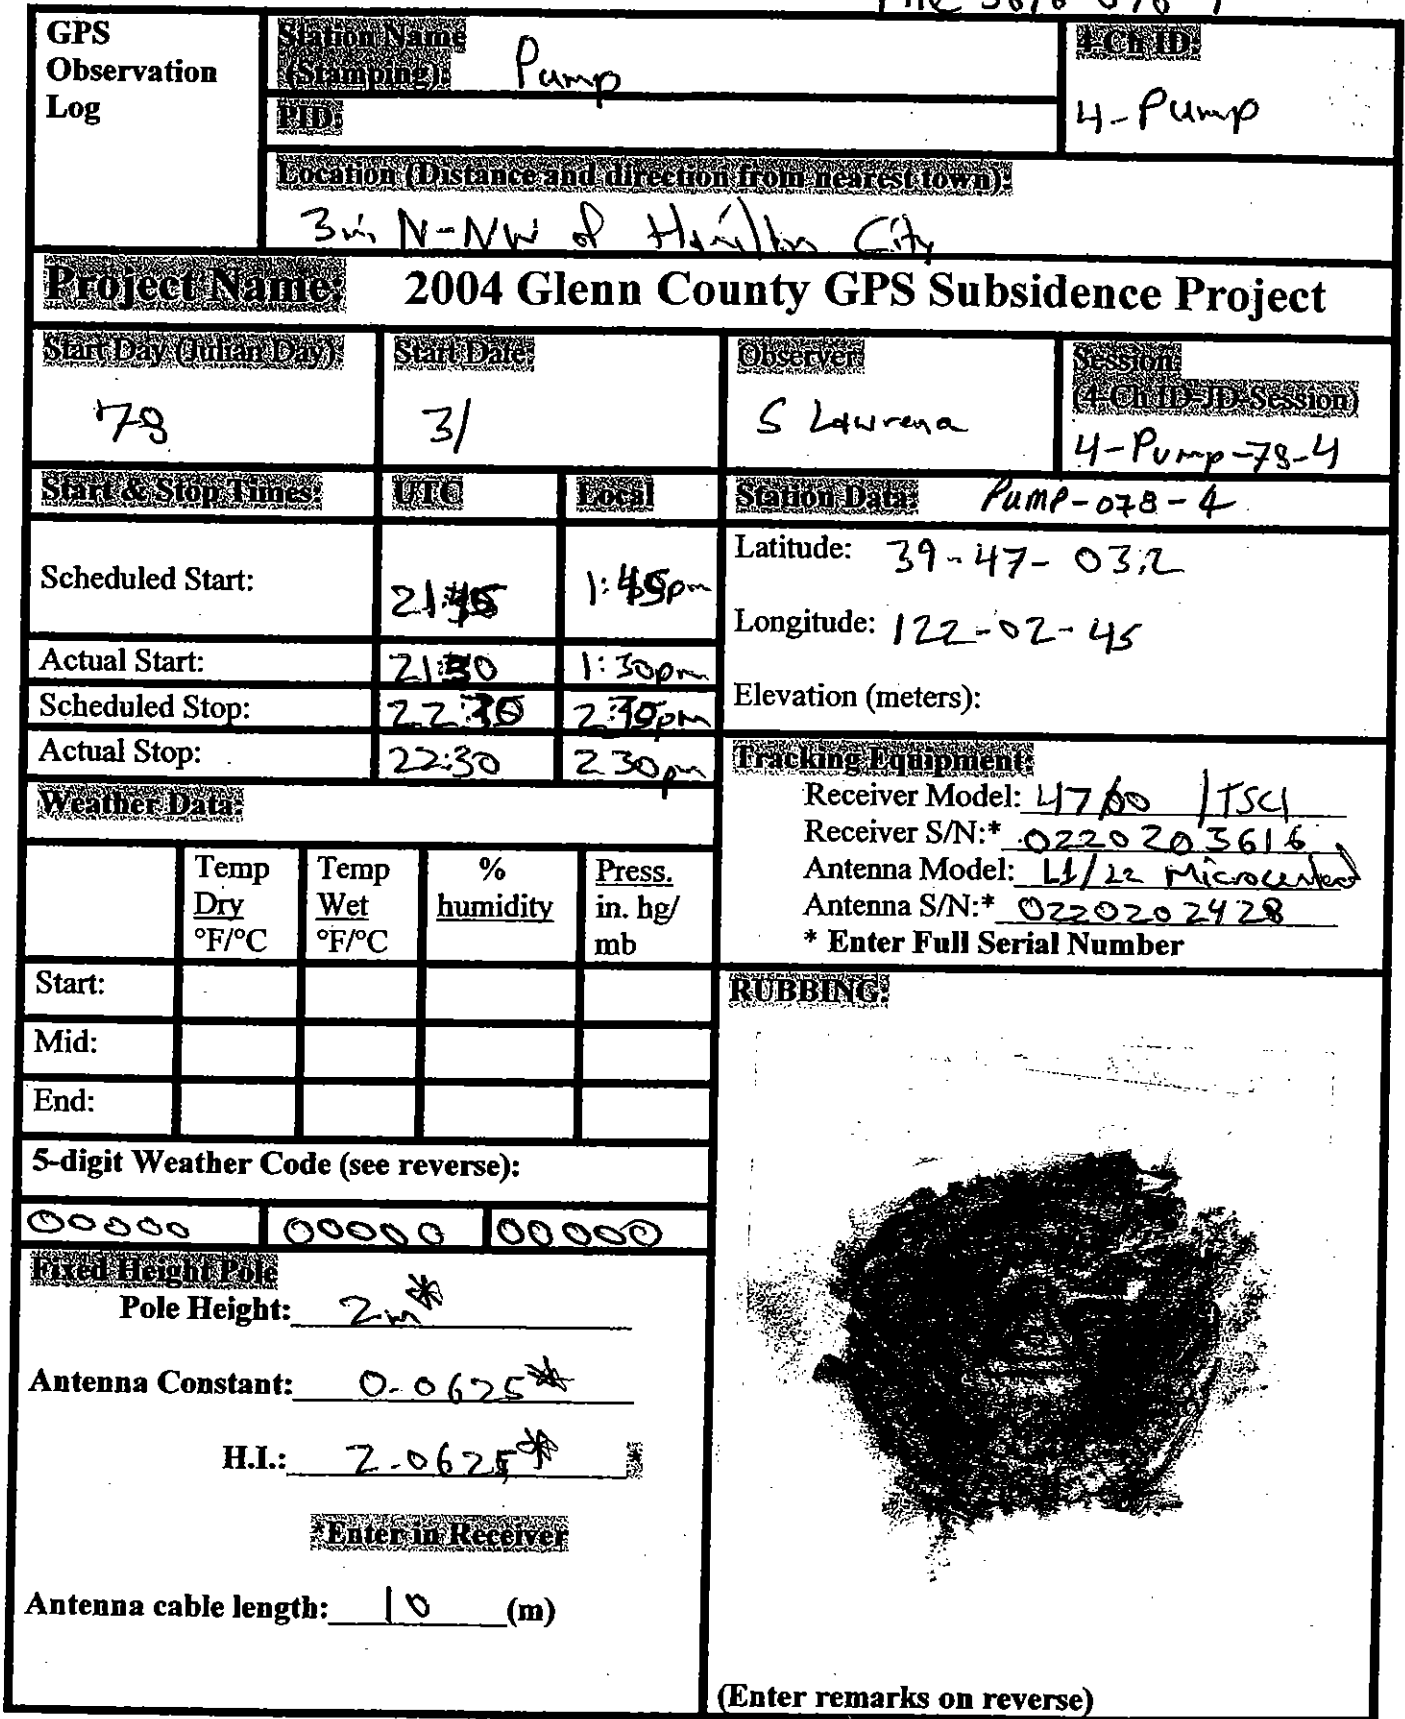 GPS
Observation
Log
Station Name
(Stamping): Pump
PID:
4-Ch ID:
4-Pump
Location (Distance and direction from nearest town):
3mi N-NW of Hamilton City
Project Name: 2004 Glenn County GPS Subsidence Project
Start Day (Julian Day):
78
Start Date:
3/
Observer:
S Lawrence
Session:
(4-Ch ID-JD-Session)
4-Pump-78-4
Start & Stop Times: UTC Local
Scheduled Start:
Actual Start: 21:30 1:30pm
Scheduled Stop: 22:30 2:30pm
Actual Stop: 22:30 2 30pm
Station Data: PUMP-078-4
Latitude: 39-47-03.2
Longitude: 122-02-45
Elevation (meters):
Tracking Equipment:
Receiver Model: 4700 /TSC1
Receiver S/N:* 0220203616
Antenna Model: L1/L2 Microcentered
Antenna S/N:* 0220202428
* Enter Full Serial Number
Weather Data:
Temp
Dry
°F/°C
Temp
Wet
°F/°C
%
humidity
Press.
in. hg/
mb
Start:
Mid:
End:
5-digit Weather Code (see reverse):
00000 00000 00000
Fixed Height Pole
Pole Height: 2m*
Antenna Constant: 0.0625*
H.I.: 2.0625*
*Enter in Receiver
Antenna cable length: 10 (m)
RUBBING:
(Enter remarks on reverse)